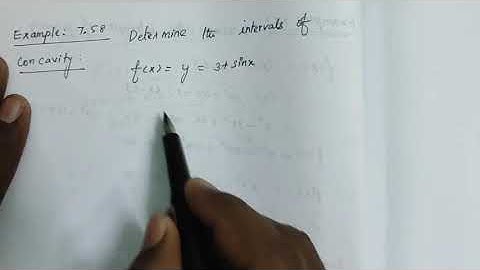 Example: 7.58 Determine the intervals of
Concavity:
f(x) = y = 3+sinx